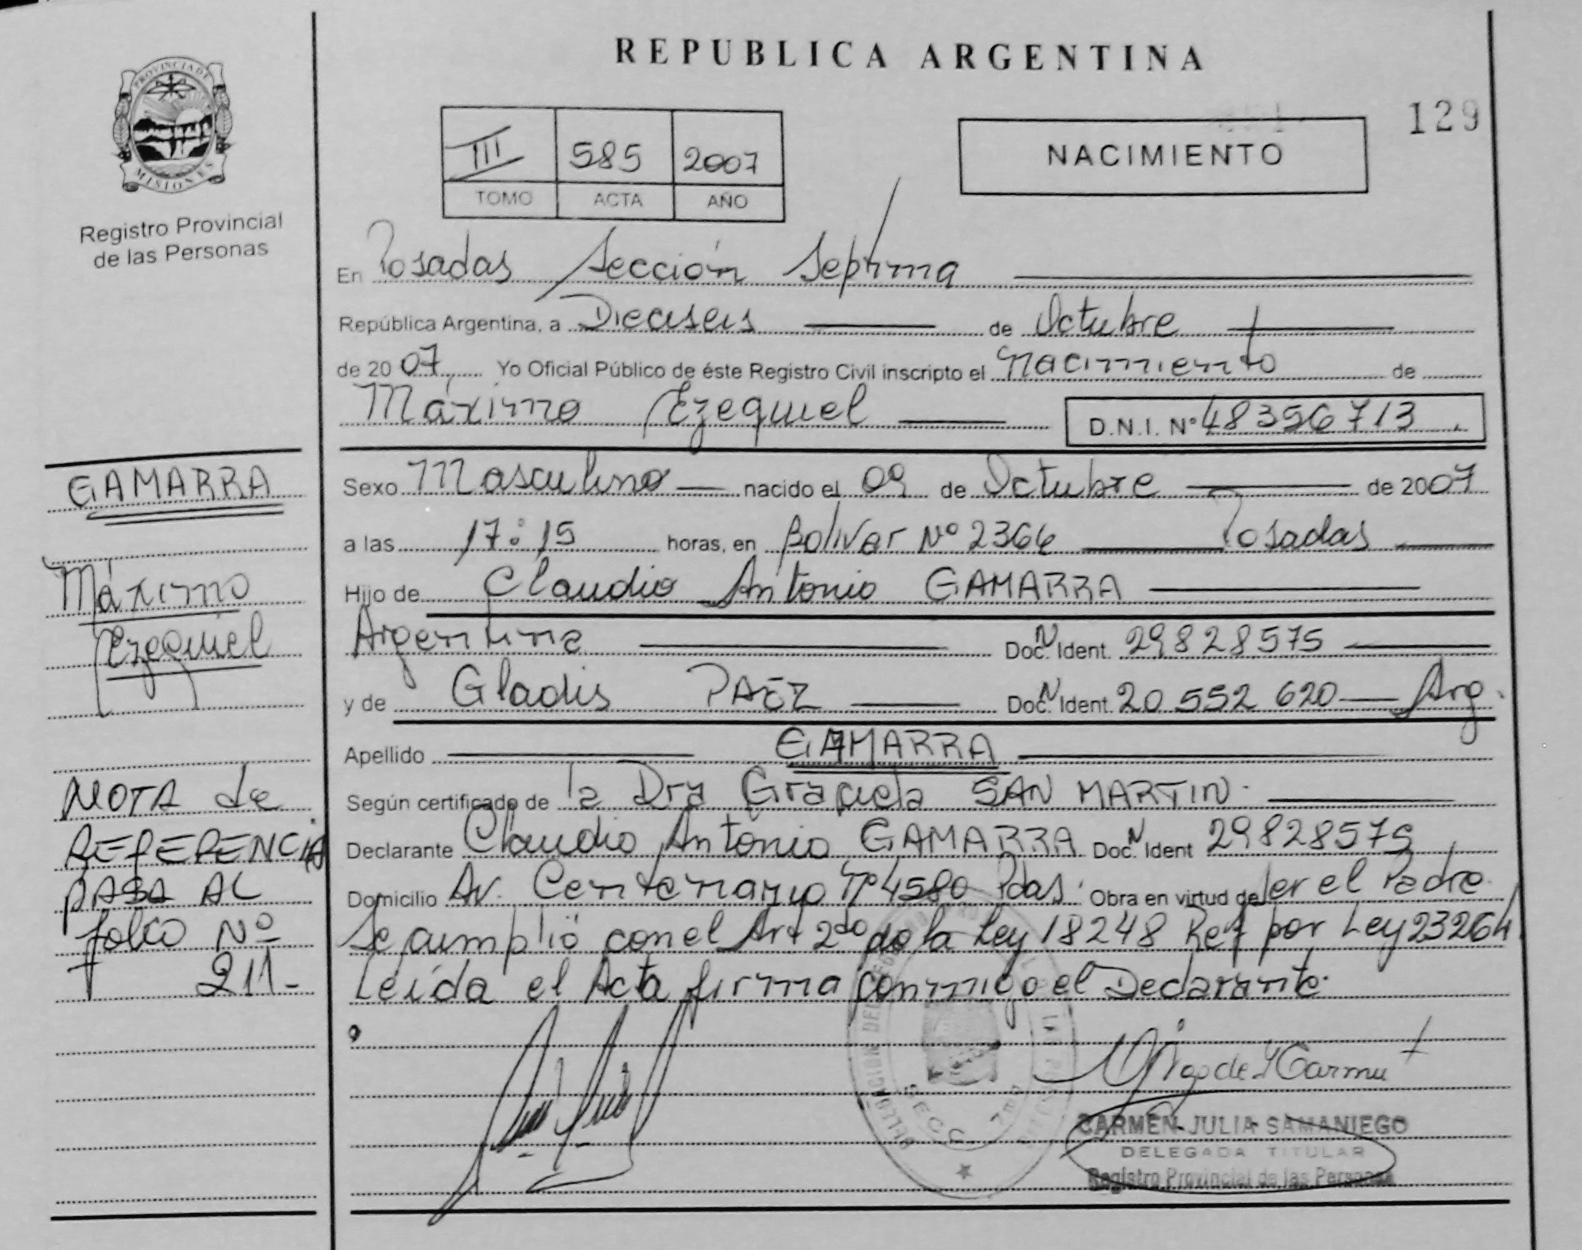 REPUBLICA ARGENTINA
129
NACIMIENTO
III 585 2007
TOMO ACTA AÑO
PROVINCIA DE
MISIONES
Registro Provincial
de las Personas
En Posadas Sección Septima
República Argentina, a Dieciseis de Octubre
de 2007 Yo Oficial Público de éste Registro Civil inscripto el Nacimiento de
Máximo Ezequiel D.N.I. Nº 48356713
GAMARRA
Máximo
Ezequiel
Sexo Masculino nacido el 09 de Octubre de 2007
a las 17:15 horas, en Bolivar Nº 2364 Posadas
Hijo de Claudio Antonio GAMARRA
Argentina Doc. N Ident. 29828575
y de Gladis PAEZ Doc. N Ident. 20 552 620 Arg.
Apellido GAMARRA
Según certificado de la Dra Graciela SAN MARTIN.
Declarante Claudio Antonio GAMARRA Doc. N Ident 29828575
Domicilio Av. Centenario Nº 4580 Pdas. Obra en virtud de ser el Padre.
Se cumplió con el Art 2do de la Ley 18248 Ref por Ley 23264
Leída el Acta firma conmigo el Declarante.
NOTA de
REFERENCIA
PASA AL
folio Nº
211.-
SECC. 7ma
CARMEN JULIA SAMANIEGO
DELEGADA TITULAR
Registro Provincial de las Personas